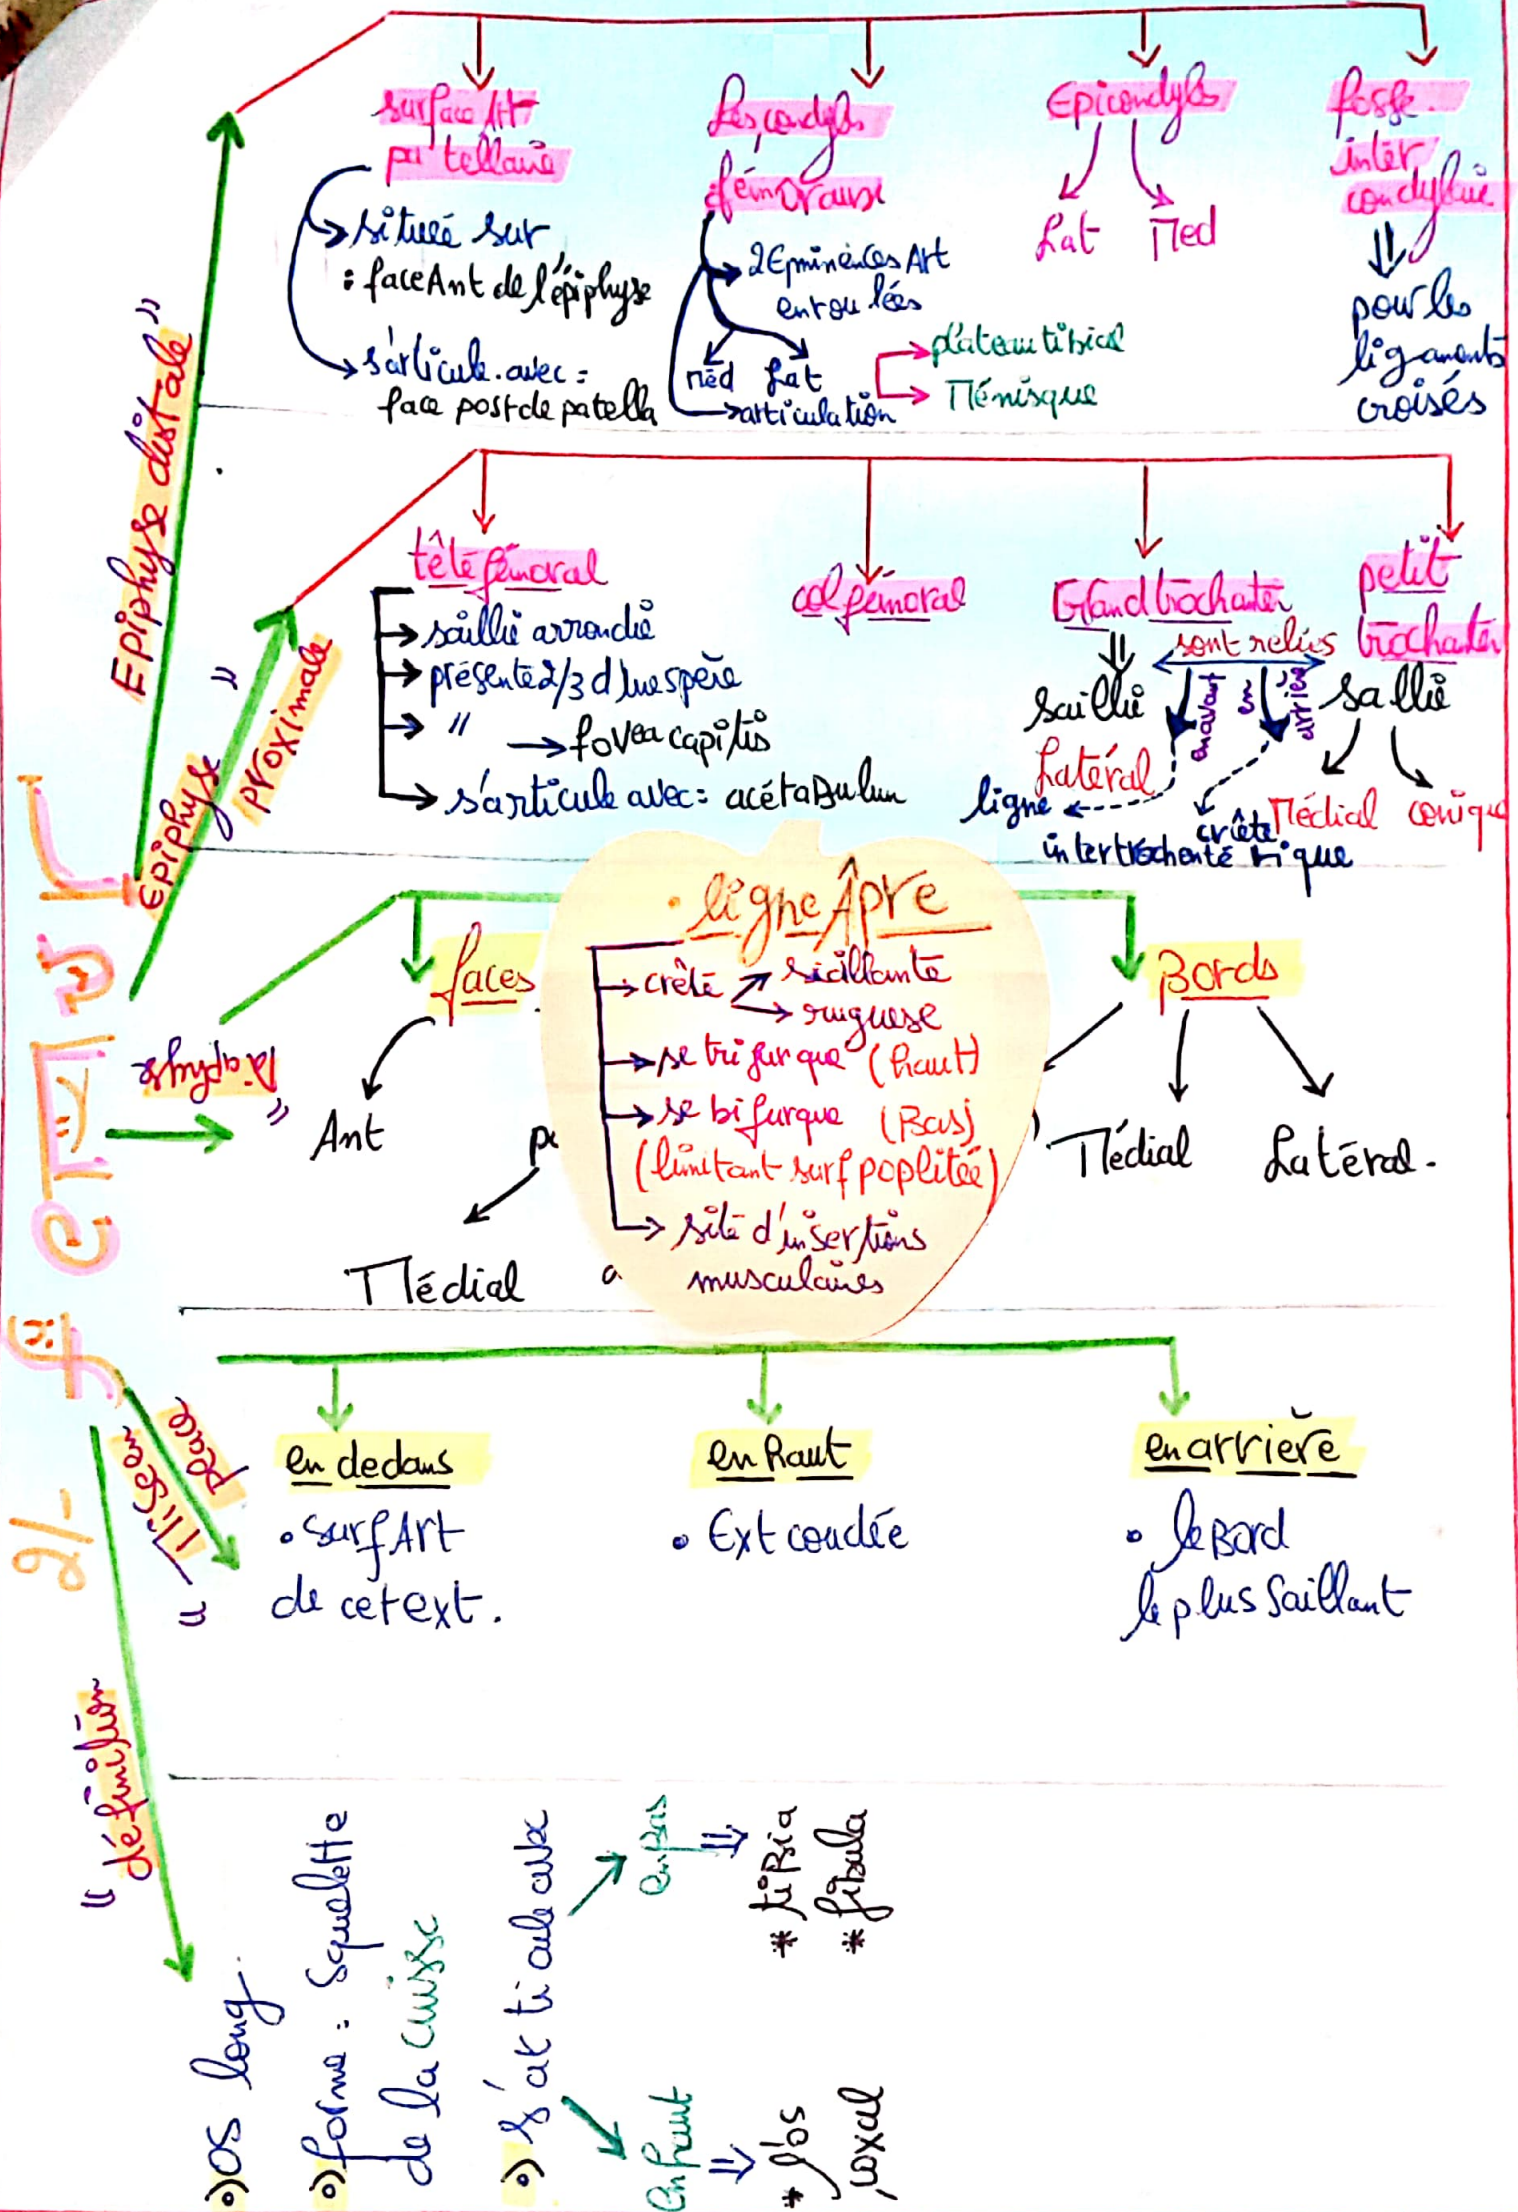 surface Art
patellaire
située sur
: face Ant de l'épiphyse
s'articule avec =
face post de patella
Les condyls
fémoraux
2 Eminences Art
enroulées
Méd Lat
articulation
plateau tibial
Ménisque
Epicondyls
Lat Med
fosse
inter
condylaire
pour les
ligaments
croisés
"Epiphyse distale"
tête fémoral
saillie arrondie
présente 2/3 d'une spère
" → fovea capitis
s'articule avec = acétabulum
col fémoral
Grand trochanter
saillie
Latéral
sont reliés
en avant
en arrière
ligne
crête
intertrochantérique
petit
trochanter
sallie
Médial conique
"Epiphyse
proximale"
faces
Ant
Médial
• ligne Âpre
crête
saillante
ruguese
se trifurque (haut)
se bifurque (Bas)
(limitant surf poplitée)
site d'insertions
musculaires
Bords
Médial Latéral.
Diaphyse"
2/- fémur
"Mise en
place
en dedans
• surf Art
de cet ext.
en haut
• Ext coudée
en arrière
• le Bord
le plus saillant
"définition
OS long.
forme : squelette
de la cuisse
en bas
* tibia
* fibula
en haut
* l'os
coxal